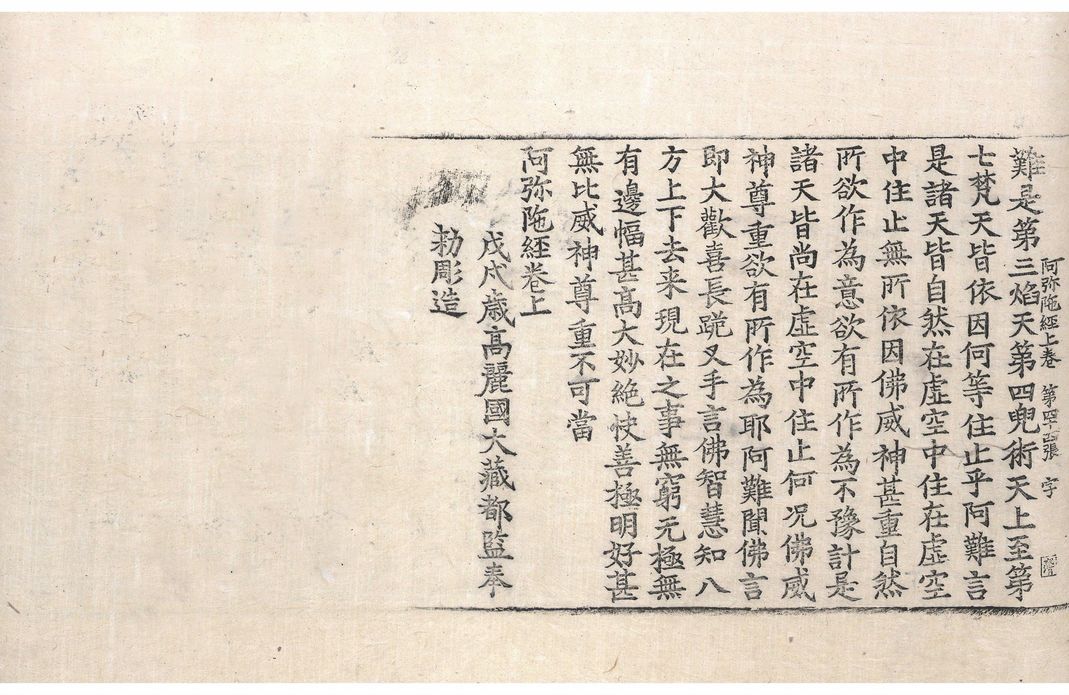 阿弥陁經上卷 第四十四張 字
難是第三焰天第四兜術天上至第
七梵天皆依因何等住止乎阿難言
是諸天皆自然在虛空中住在虛空
中住止無所依因佛威神甚重自然
所欲作為意欲有所作為不豫計是
諸天皆尚在虛空中住止何况佛威
神尊重欲有所作為耶阿難聞佛言
即大歡喜長跪叉手言佛智慧知八
方上下去来現在之事無窮无極無
有邊幅甚高大妙絶快善極明好甚
無比威神尊重不可當
阿弥陁經卷上
戊戌歳髙麗國大藏都監奉
勑彫造